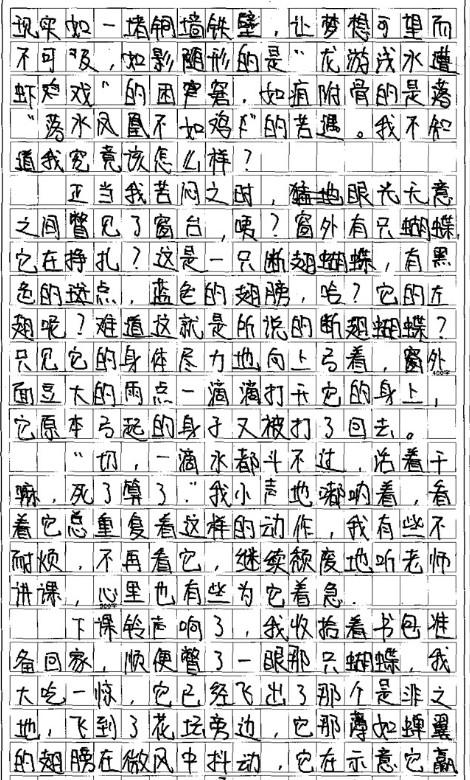 现实如一堵铜墙铁壁，让梦想可望而
不可及，如影随形的是“龙游浅水遭
虾戏”的困窘，如疽附骨的是落
“落水凤凰不如鸡”的苦遇。我不知
道我究竟该怎么样？
正当我苦闷之时，眼光无意
之间瞥见了窗台，咦？窗外有只蝴蝶，
它在挣扎？这是一只断翅蝴蝶，有黑
色的斑点，蓝色的翅膀，哈？它的左
翅呢？难道这就是所说的断翅蝴蝶？
只见它的身体尽力地向上弓着，窗外
面豆大的雨点一滴滴打于它的身上，
它原本弓起的身子又被打了回去。
“切，一滴水都斗不过，活着干
嘛，死了算了。”我小声地嘟呐着，看
着它总重复着这样的动作，我有些不
耐烦，不再看它，继续颓废地听老师
讲课，心里也有些为它着急。
下课铃声响了，我收拾着书包准
备回家，顺便瞥了一眼那只蝴蝶，我
大吃一惊，它已经飞出了那个是非之
地，飞到了花坛旁边，它那薄如蝉翼
的翅膀在微风中抖动，它在示意它赢